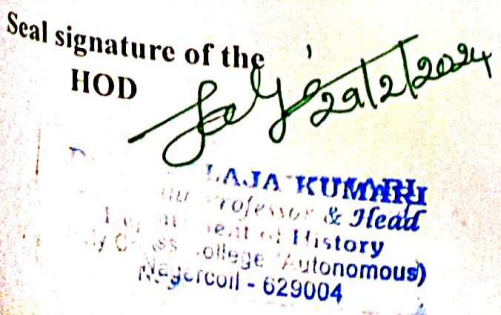 Seal signature of the
HOD
29/2/2024
LAJA KUMARI
rofessor & Head
ent of History
ollege (Autonomous)
Nagercoil - 629004